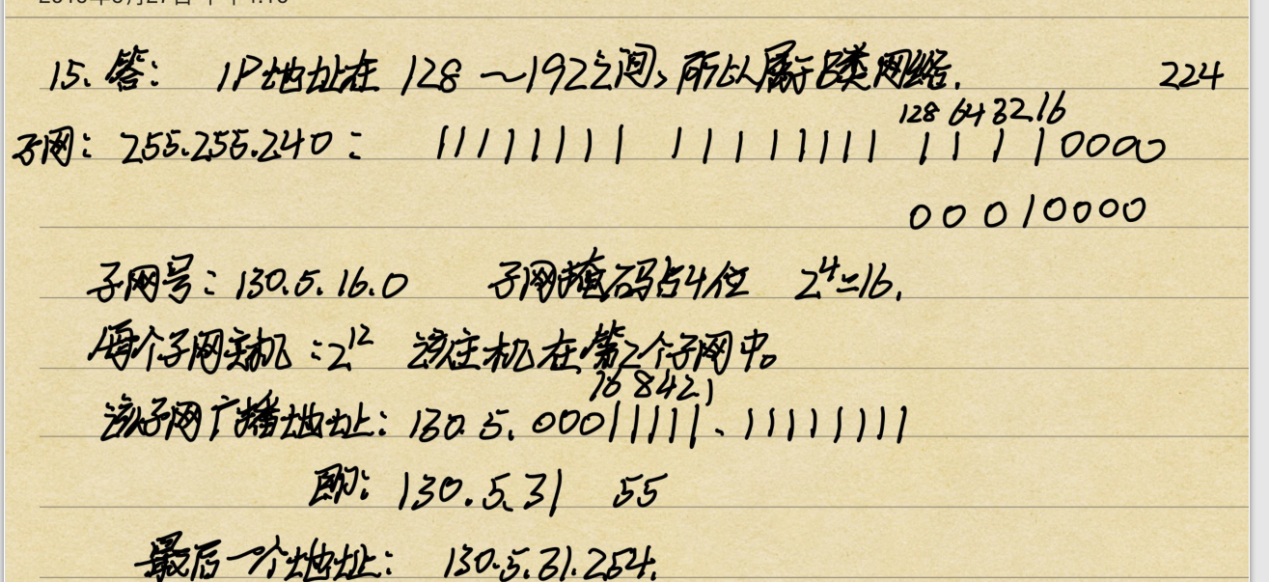 15. 答: IP地址在 128 ~192之间, 所以属于B类网络. 224
128 64 32 16
子网: 255.255.240: 11111111 11111111 11110000
00010000
子网号: 130.5.16.0 子网掩码占4位 2^4=16.
每个子网主机: 2^12 该主机在第2个子网中。
16 8 4 2 1
该子网广播地址: 130.5.00011111.11111111
即: 130.5.31 55
最后一个地址: 130.5.31.254.